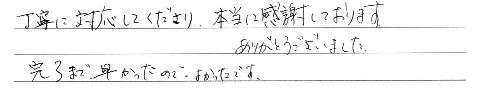 丁寧に対応してくださり、本当に感謝しております。
ありがとうございました。
完了まで早かったので、よかったです。